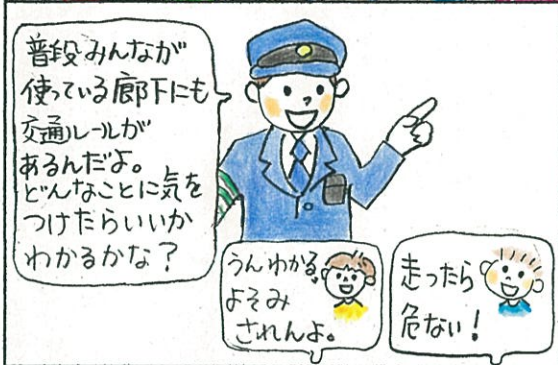 普段みんなが
使っている廊下にも
交通ルールが
あるんだよ。
どんなことに気を
つけたらいいか
わかるかな？
うんわかる、
よそみ
されんよ。
走ったら
危ない！